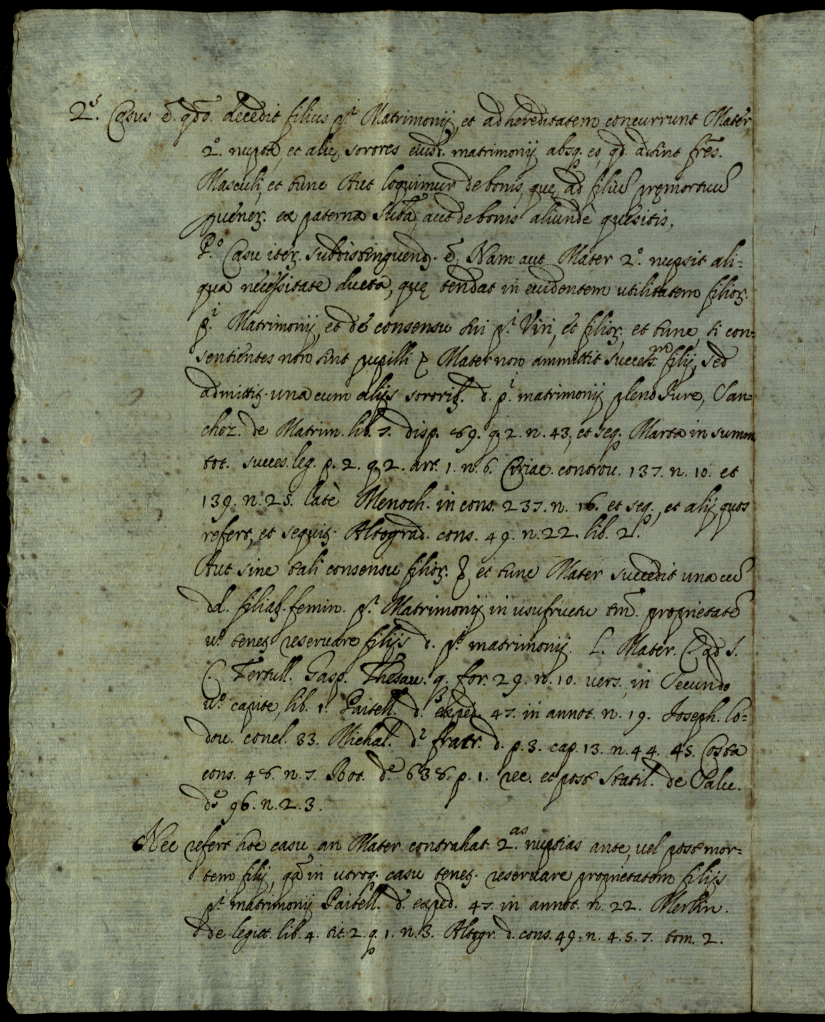 2.s Casus ē qdō. decedit filius pi. Matrimonij, et ad hereditatem concurrunt Mater,
2.o nupta, et alię sorores eiusd. matrimonij absq. eo, qd. adsint frēs.
Masculi, et tunc Aut loquimur de bonis, quę ad filiū pręmortuū
ex paterna aut de bonis aliunde quęsitis,
P.o Casu iter. subdistinguend. ē, Nam aut Mater 2.o nupsit ali-
qua necessitate ducta, quę tendat in euidentem utilitatem filior.
p.i Matrimonij, et de consensu p.i Viri, et filior, et tunc, si con-
sentientes non sint pupilli Mater non ammittit success.nem filij, sed
admittit. una cum alijs soror. d. p.i matrimonij pleno Iure, San-
chez. de Matrim. lib. 7. disp. 89. q 2. n. 43, et seq. Marta in summ
tot. succes. leg. p. 2. q 2. art. 1. n. 6. Ciriac. controu. 137. n. 10. et
139. n. 25. latè Menoch. in cons. 237. n. 16. et seq., et alij quos
refert, et sequit. Altograd. cons. 49. n. 22. lib. 2.
Aut sine tali consensu filior. et tunc Mater succedit una cū
dd. filiab. femin. p.i Matrimonij in usufructu tm̄. proprietatē
u.o tenet reseruare filijs d. p.i matrimonij. L. Mater. C. ad S.
C. Tertull. Gasp. Thesau. q. for. 29. n. 10. vers. in Secundo
u.o capite, lib. 1. d. exped. 47. in annot. n. 19. Joseph. Lo-
dou. concl. 33. Michal. d. fratr. d. p. 3. cap. 13. n. 44. 45. Costa
cons. 46. n. 7. 636. p. 1. rec. et post Statil. de Salu.
96. n. 2. 3.
Nec refert hoc casu an Mater contrahat 2.as nuptias ante, vel post mor-
tem filij, qā in utroq. casu tenet. reseruare proprietatem filijs
p.i matrimonij d. exped. 47. in annot. n. 22. Merlin.
de legit. lib. 4. tit. 2. q 1. n. 3. Altogr. d. cons. 49. n. 4. 5. 7. tom. 2.